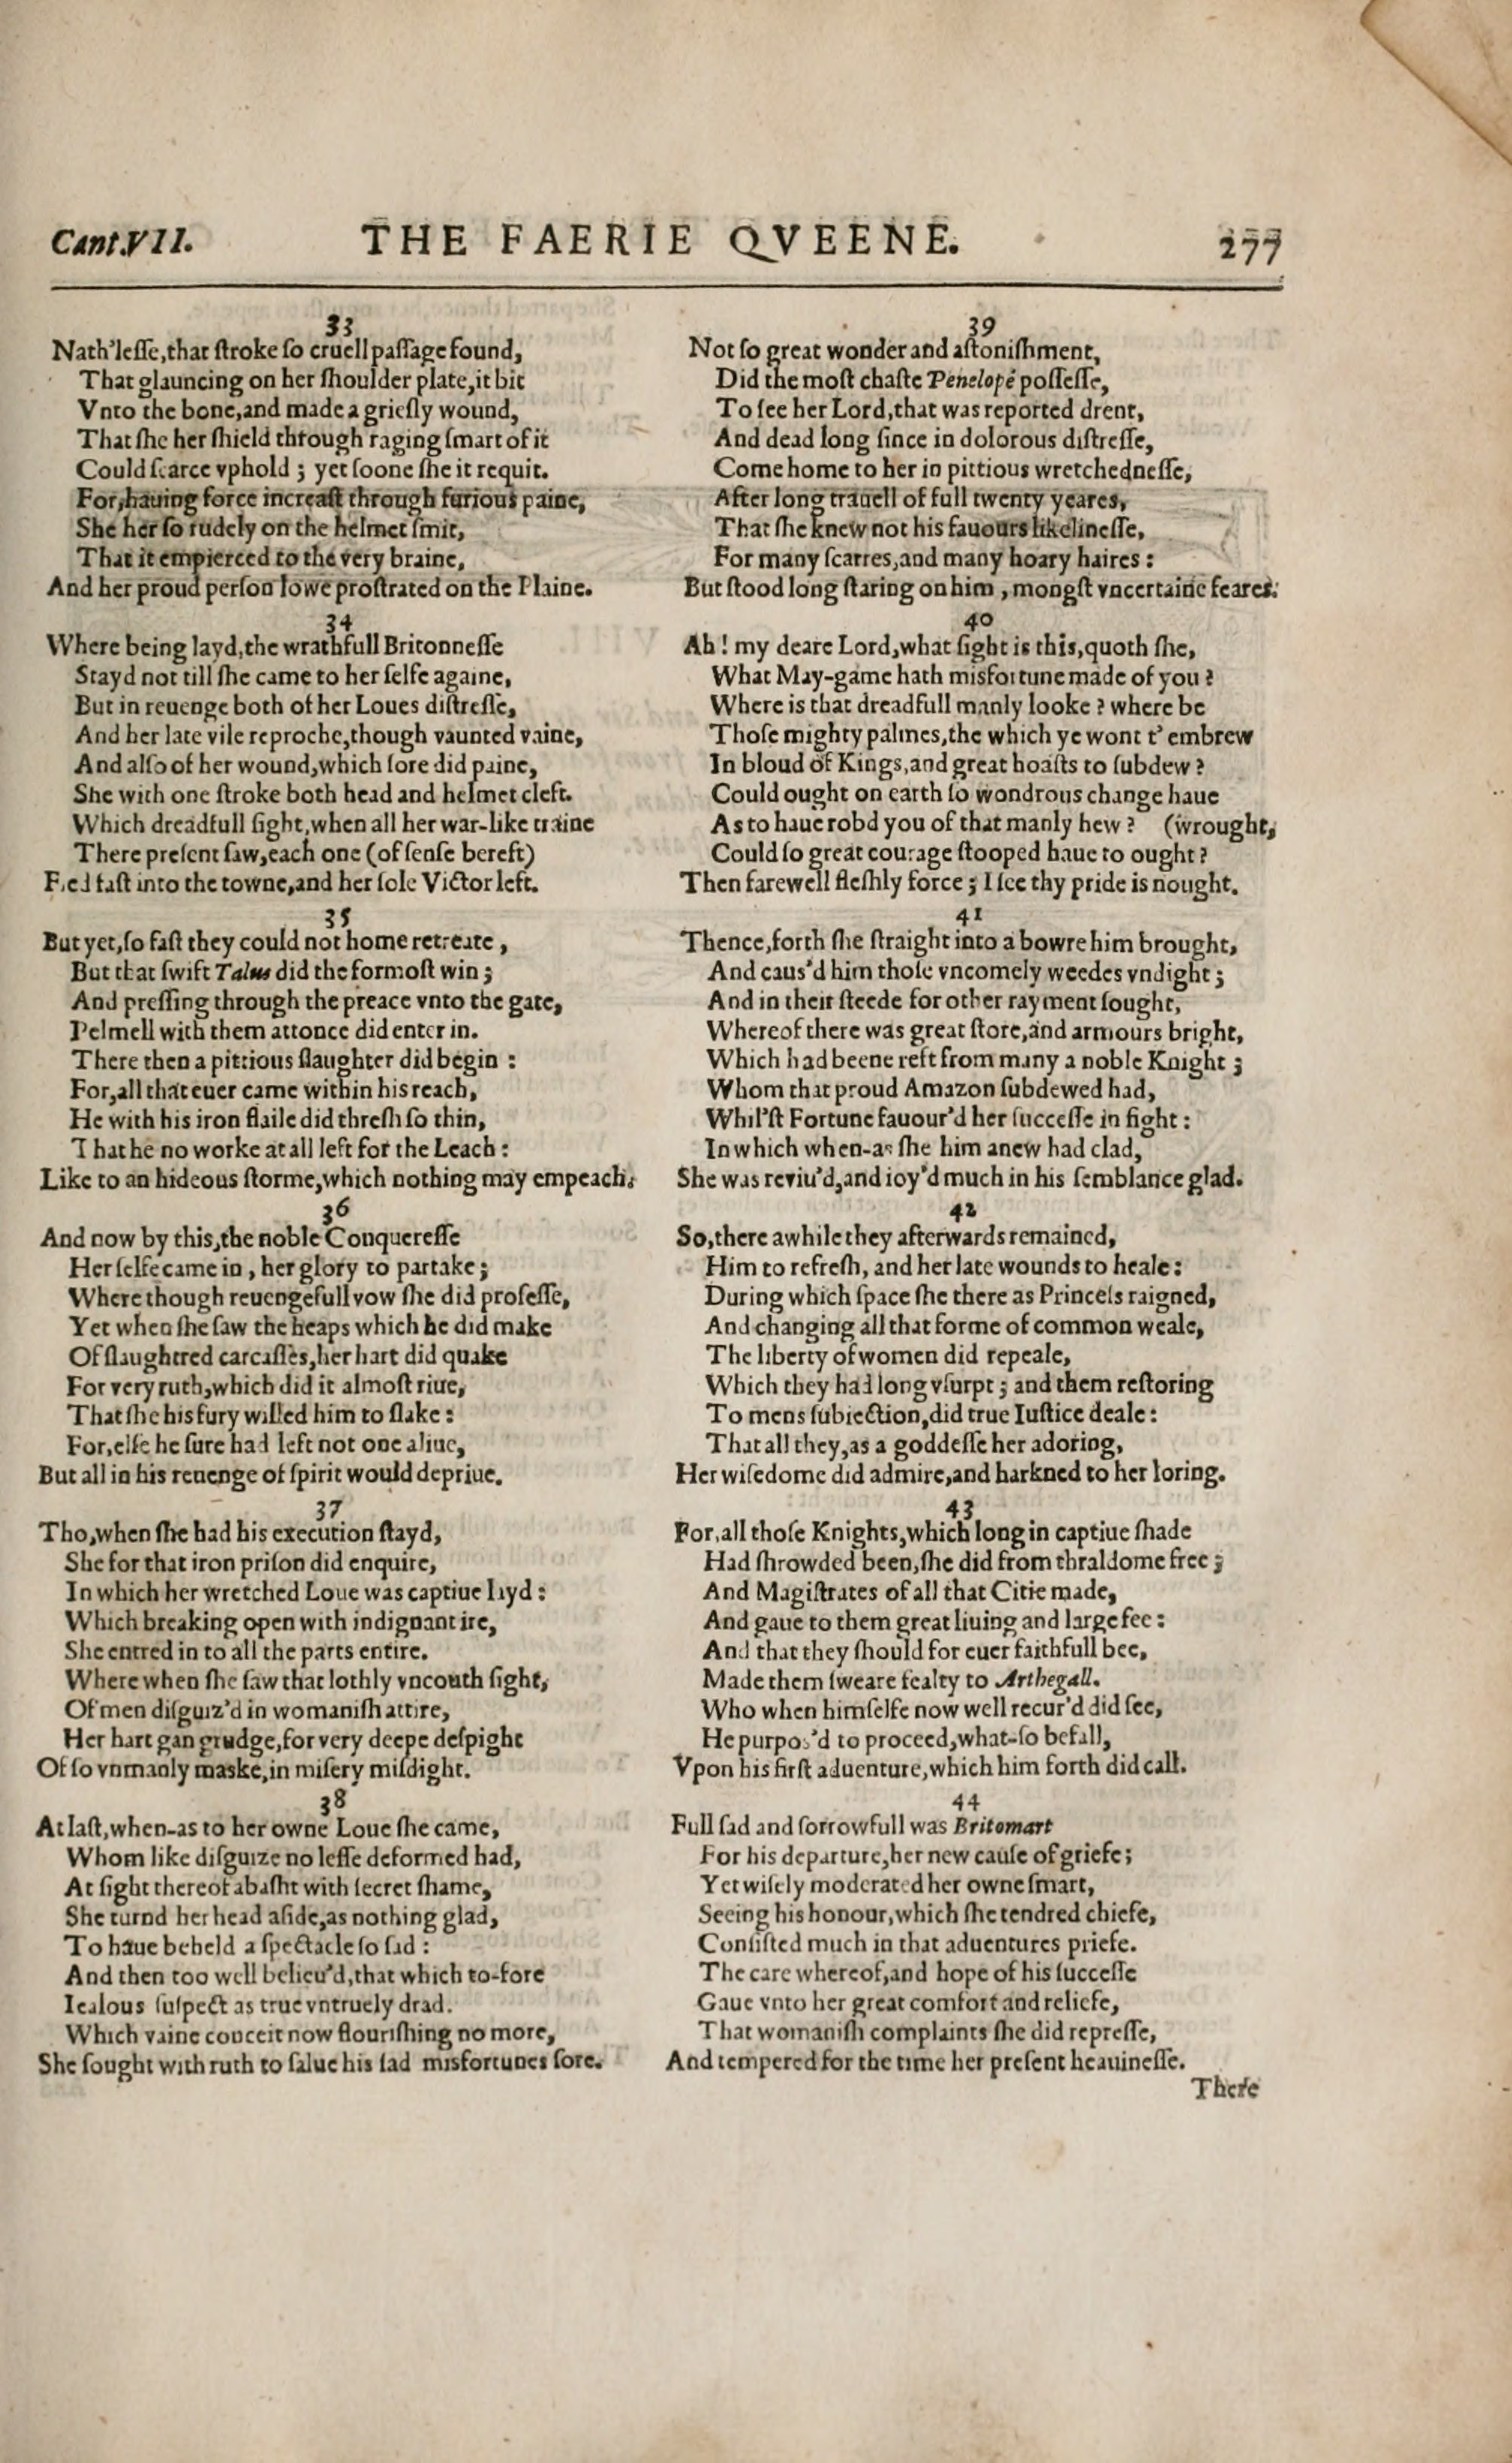 Cant.VII. THE FAERIE QVEENE. 277
33
Nath'leſſe, that ſtroke ſo cruell paſſage found,
That glauncing on her ſhoulder plate, it bit
Vnto the bone, and made a griefly wound,
That ſhe her ſhield through raging ſmart of it
Could ſcarce vphold ; yet ſoone ſhe it requit.
For, hauing force increaſt through furious paine,
She her ſo rudely on the helmet ſmit,
That it empierced to the very braine,
And her proud perſon lowe proſtrated on the Plaine.
34
Where being layd, the wrathfull Britonneſſe
Stayd not till ſhe came to her ſelfe againe,
But in reuenge both of her Loues diſtreſſe,
And her late vile reproche, though vaunted vaine,
And alſo of her wound, which ſore did paine,
She with one ſtroke both head and helmet cleft.
Which dreadfull ſight, when all her war-like traine
There preſent ſaw, each one (of ſenſe bereft)
Fled faſt into the towne, and her ſole Victor left.
35
But yet, ſo faſt they could not home retreate ,
But that ſwift Talus did the formoſt win ;
And preſſing through the preace vnto the gate,
Pelmell with them attonce did enter in.
There then a pittious ſlaughter did begin :
For, all that euer came within his reach,
He with his iron flaile did threſh ſo thin,
That he no worke at all left for the Leach :
Like to an hideous ſtorme, which nothing may empeach.
36
And now by this, the noble Conquereſſe
Her ſelfe came in , her glory to partake ;
Where though reuengefull vow ſhe did profeſſe,
Yet when ſhe ſaw the heaps which he did make
Of ſlaughtred carcaſſes, her hart did quake
For very ruth, which did it almoſt riue,
That ſhe his fury willed him to ſlake :
For, elſe he ſure had left not one aliue,
But all in his reuenge of ſpirit would depriue.
37
Tho, when ſhe had his execution ſtayd,
She for that iron priſon did enquire,
In which her wretched Loue was captiue layd :
Which breaking open with indignant ire,
She entred in to all the parts entire.
Where when ſhe ſaw that lothly vncouth ſight,
Of men diſguiz'd in womaniſh attire,
Her hart gan grudge, for very deepe deſpight
Of ſo vnmanly maske, in miſery miſdight.
38
At laſt, when-as to her owne Loue ſhe came,
Whom like diſguize no leſſe deformed had,
At ſight thereof abaſht with ſecret ſhame,
She turnd her head aſide, as nothing glad,
To haue beheld a ſpectacle ſo ſad :
And then too well belieu'd, that which to-fore
Iealous ſuſpect as true vntruely drad.
Which vaine conceit now flouriſhing no more,
She ſought with ruth to ſalue his ſad misfortunes ſore.
39
Not ſo great wonder and aſtoniſhment,
Did the moſt chaſte Penelopè poſſeſſe,
To ſee her Lord, that was reported drent,
And dead long ſince in dolorous diſtreſſe,
Come home to her in pittious wretchedneſſe,
After long trauell of full twenty yeares,
That ſhe knew not his fauours likelineſſe,
For many ſcarres, and many hoary haires :
But ſtood long ſtaring on him , mongſt vncertaine feares.
40
Ah ! my deare Lord, what ſight is this, quoth ſhe,
What May-game hath misfortune made of you ?
Where is that dreadfull manly looke ? where be
Thoſe mighty palmes, the which ye wont t' embrew
In bloud of Kings, and great hoaſts to ſubdew ?
Could ought on earth ſo wondrous change haue
As to haue robd you of that manly hew ? (wrought,
Could ſo great courage ſtooped haue to ought ?
Then farewell fleſhly force ; I ſee thy pride is nought.
41
Thence, forth ſhe ſtraight into a bowre him brought,
And caus'd him thoſe vncomely weedes vndight ;
And in their ſteede for other rayment ſought,
Whereof there was great ſtore, and armours bright,
Which had beene reft from many a noble Knight ;
Whom that proud Amazon ſubdewed had,
Whil'ſt Fortune fauour'd her ſucceſſe in fight :
In which when-as ſhe him anew had clad,
She was reviu'd, and ioy'd much in his ſemblance glad.
42
So, there awhile they afterwards remained,
Him to refreſh, and her late wounds to heale :
During which ſpace ſhe there as Princeſs raigned,
And changing all that forme of common weale,
The liberty of women did repeale,
Which they had long vſurpt ; and them reſtoring
To mens ſubiection, did true Iuſtice deale :
That all they, as a goddeſſe her adoring,
Her wiſedome did admire, and harkned to her loring.
43
For, all thoſe Knights, which long in captiue ſhade
Had ſhrowded been, ſhe did from thraldome free ;
And Magiſtrates of all that Citie made,
And gaue to them great liuing and large fee :
And that they ſhould for euer faithfull bee,
Made them ſweare fealty to Arthegall.
Who when himſelfe now well recur'd did ſee,
He purpos'd to proceed, what-ſo befall,
Vpon his firſt aduenture, which him forth did call.
44
Full ſad and ſorrowfull was Britomart
For his departure, her new cauſe of griefe ;
Yet wiſely moderated her owne ſmart,
Seeing his honour, which ſhe tendred chiefe,
Conſiſted much in that aduentures priefe.
The care whereof, and hope of his ſucceſſe
Gaue vnto her great comfort and reliefe,
That womaniſh complaints ſhe did repreſſe,
And tempered for the time her preſent heauineſſe.
There